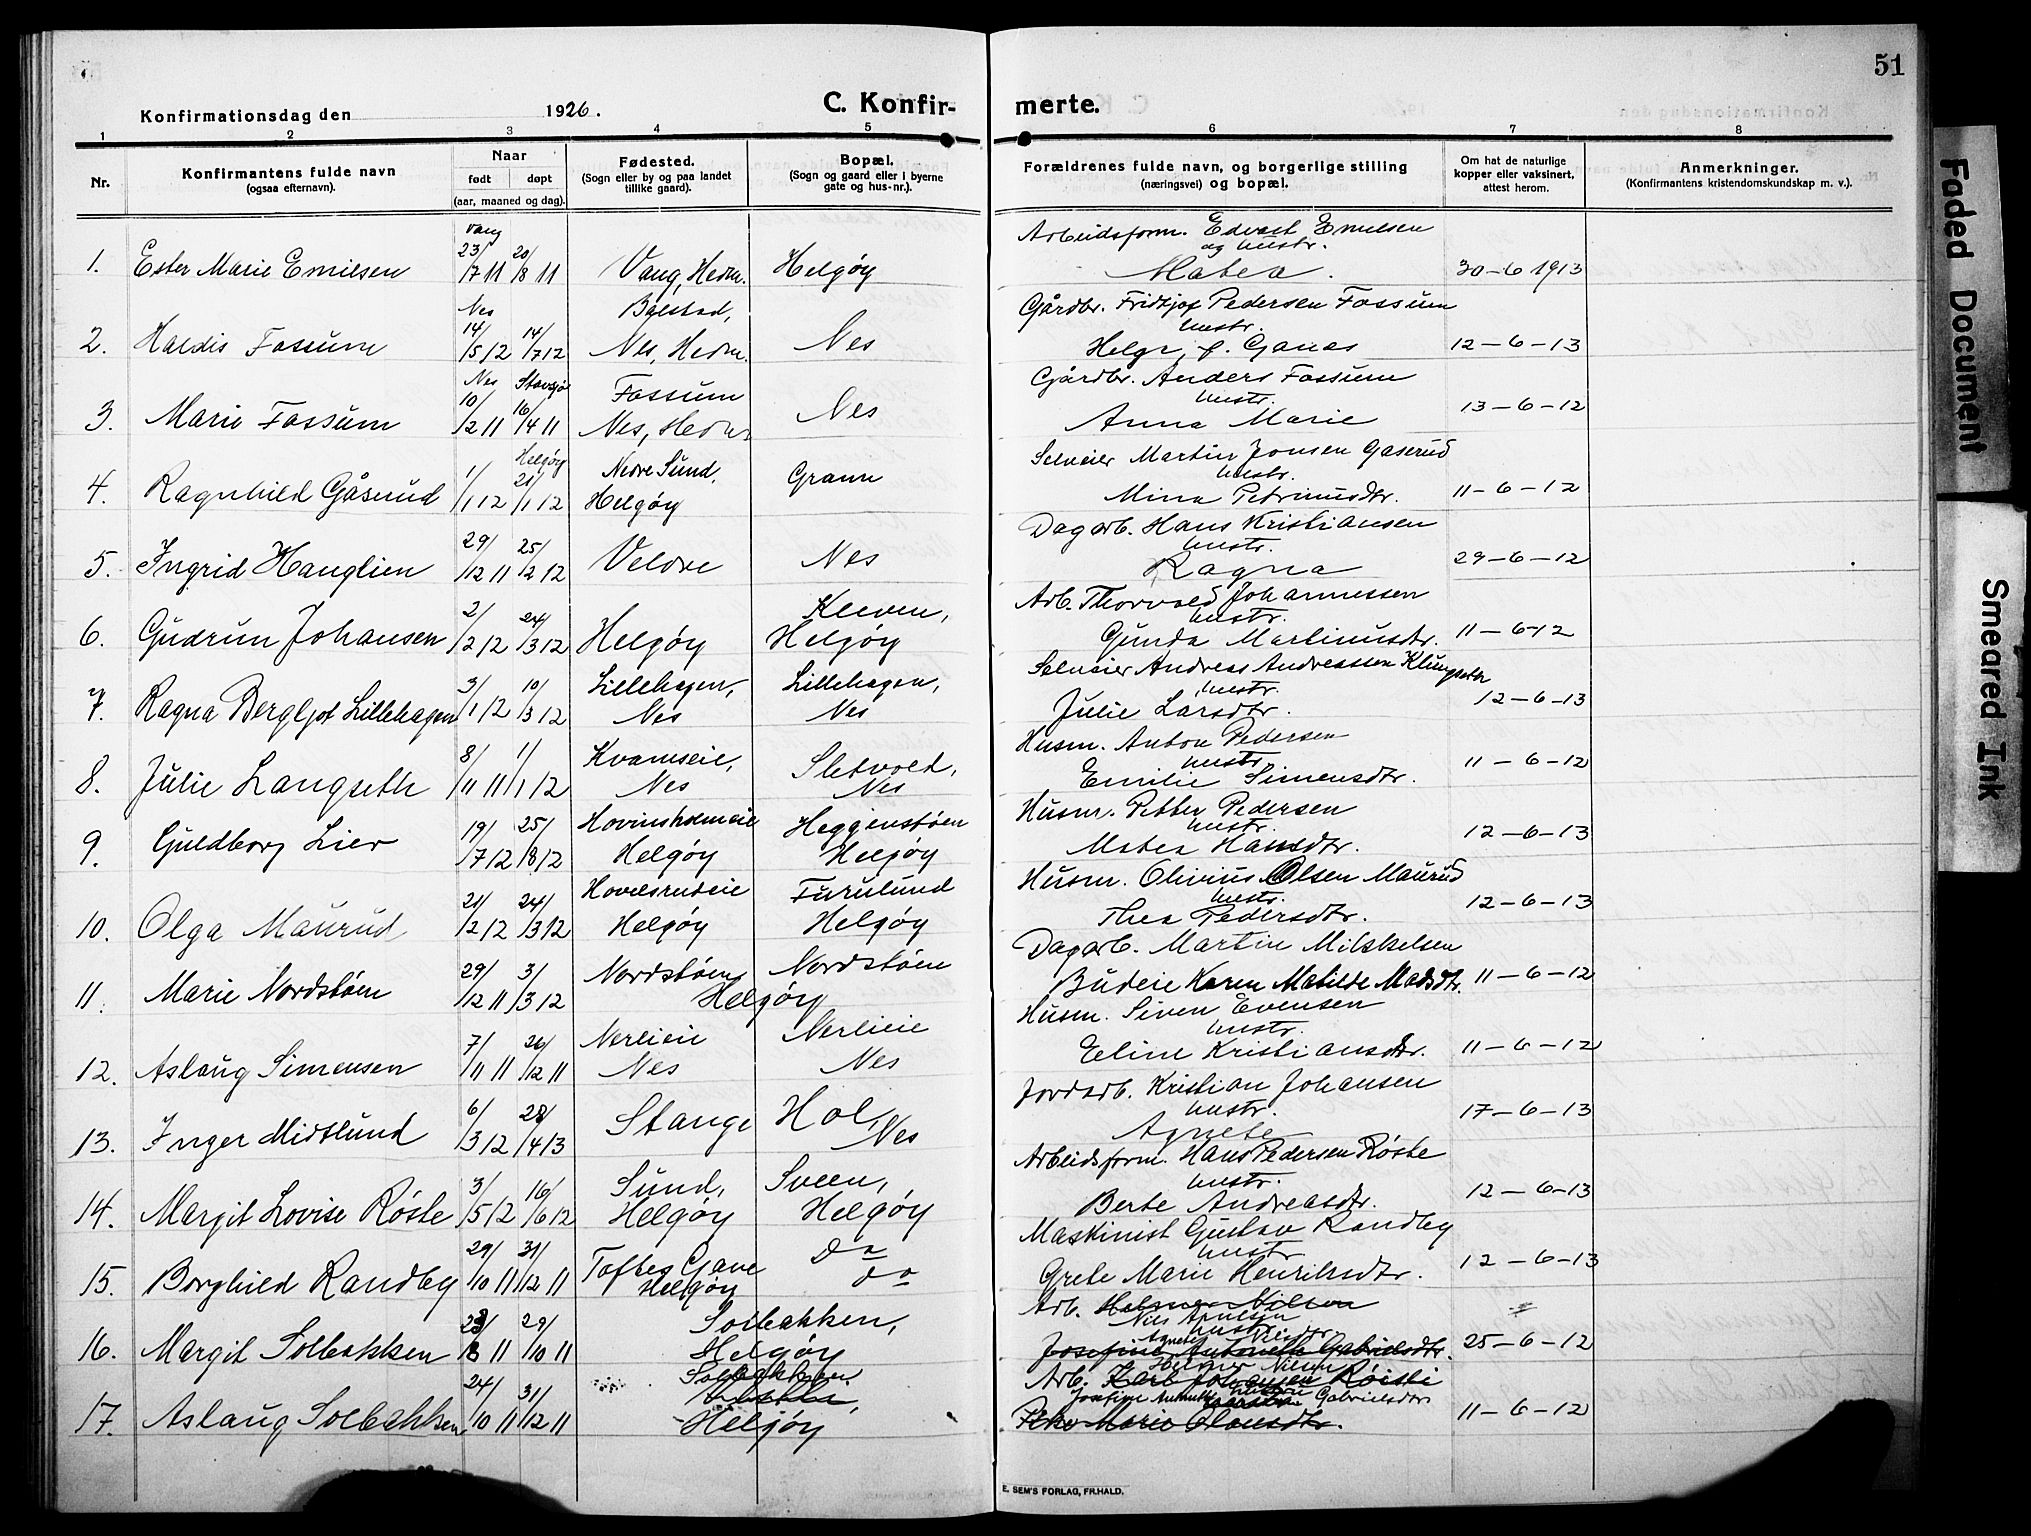 51
Konfirmationsdag den 1926. C. Konfir- merte.
1 2 3 4 5 6 7 8
Nr.
Konfirmantens fulde navn
(ogsaa efternavn).
Naar
født døpt
(aar, maaned og dag).
Fødested.
(Sogn eller by og paa landet
tillike gaard).
Bopæl.
(Sogn og gaard eller i byerne
gate og hus-nr.).
Forældrenes fulde navn, og borgerlige stilling
(næringsvei) og bopæl.
Om hat de naturlige
kopper eller vaksinert,
attest herom.
Anmerkninger.
(Konfirmantens kristendomskundskap m. v.).
Vang
1. Ester Marie Emilsen 23/7 11 20/8 11 Vang, Hedm. Helgøy
Arbeidsform. Edvart Emilsen
og hustr.
Matea. 30-6 1913
Nes
2. Haldis Fossum 14/5 12 14/7 12 Balstad, Nes, Hedm. Nes
Gårdbr. Fridtjof Pedersen Fossum
hustr.
Helga f. Ganas 12-6-13
Nes Stavsjø
3. Marie Fossum 10/2 11 16/4 11 Fossum Nes, Hedm. Nes
Gårdbr. Anders Fossum
hustr.
Anna Marie 13-6-12
Helgøy
4. Ragnhild Gåserud 1/1 12 21/1 12 Nedre Sund, Helgøy Gramm
Selveier Martin Jonsen Gaserud
hustr.
Mina Petrinusdtr. 11-6-12
5. Ingrid Hanglien 29/12 11 25/2 12 Veldre Nes
Dagarb. Hans Kristiansen
hustr.
Ragna 29-6-12
6. Gudrun Johansen 2/2 12 24/3 12 Helgøy Kleiven, Helgøy
Arb. Thorvald Johannessen
hustr.
Gunda Martinusdtr. 11-6-12
7. Ragna Bergljot Lillehagen 3/1 12 10/3 12 Lillehagen, Nes Lillehagen, Nes
Selveier Andreas Andreassen Klungseter
hustr.
Julie Larsdtr. 12-6-13
8. Julie Langseth 8/11 11 1/1 12 Kvamseie, Nes Sletvolt, Nes
Husm. Anton Pedersen
hustr.
Emilie Simensdtr. 11-6-12
9. Guldborg Lier 19/7 12 25/8 12 Hovinsholmeie Helgøy Heggenstøen Helgøy
Husm. Petter Pedersen
hustr.
Matea Hansdtr. 12-6-13
10. Olga Maurud 21/2 12 24/3 12 Hovelsrudeie Helgøy Furulund Helgøy
Husm. Olivius Olsen Maurud
hustr.
Thea Pedersdtr. 12-6-13
11. Marie Nordstøen 29/12 11 3/3 12 Nordstøen, Helgøy Nordstøen
Dagarb. Martin Mikkelsen
Budeie Karen Matilde Madsdtr. 11-6-12
12. Aslaug Simensen 7/11 11 26/12 11 Nerlieie Nes Nerlieie Nes
Husm. Siven Evensen
hustr.
Eline Kristiansdtr. 11-6-12
13. Inger Midtlund 6/3 12 28/4 13 Stange Hol, Nes
Jordarb. Kristian Johansen
hustr.
Agnete 17-6-13
14. Margit Lovise Røste 3/5 12 16/6 12 Sund, Helgøy Sveen, Helgøy
Arbeidsform. Hans Pedersen Røste
hustr.
Berte Andreasdtr. 12-6-13
15. Borghild Randby 29/10 11 31/12 11 Toftes Gave Helgøy do do
Maskinist Gustav Randby
hustr.
Grete Marie Henriksdtr. 12-6-13
16. Margit Solbakken 23/8 11 29/10 11 Solbakken, Helgøy
Arb. Helmer Nilsen
hustr.
Josefine Antonette Gabrielsdtr. 25-6-12
17. Aslaug Solbakken 24/10 11 31/12 11 Solbakken Helgøy
Arb. Karl Johansen Røisti
Helmer Nilsen
Josefine Antonette Gabrielsdtr
Marie Olausdtr. 11-6-12
E. SEM'S FORLAG, FR.HALD.
Faded Document
Smeared Ink